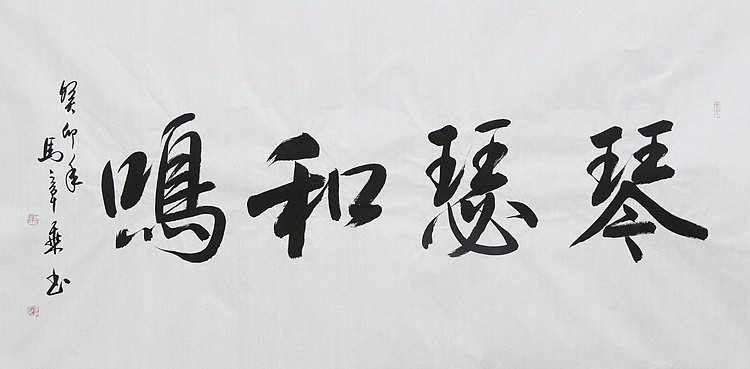 琴瑟和鳴
癸卯年
馬章乘书